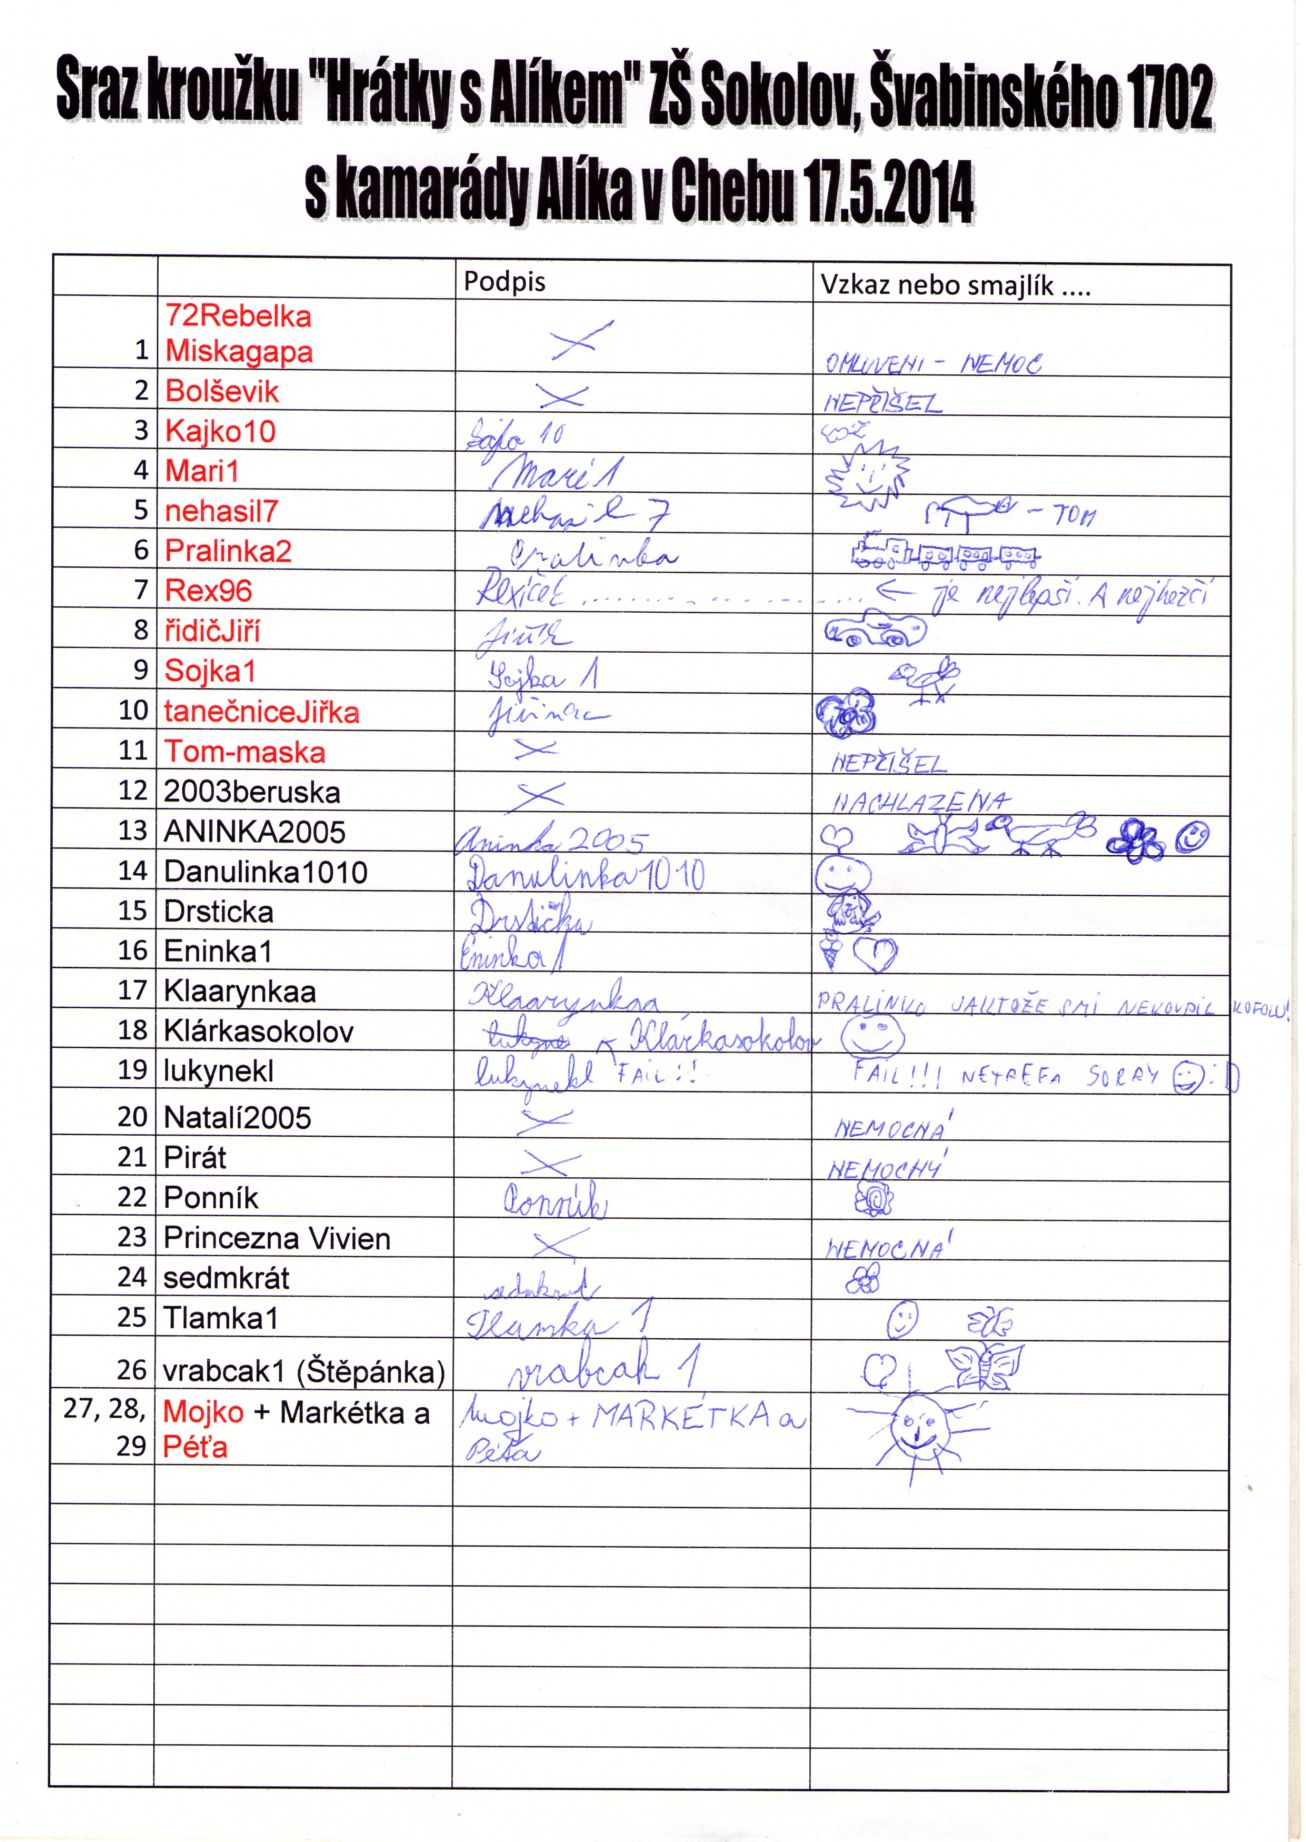 Sraz kroužku "Hrátky s Alíkem" ZŠ Sokolov, Švabinského 1702
s kamarády Alíka v Chebu 17.5.2014
Podpis Vzkaz nebo smajlík ....
72Rebelka
1 Miskagapa OMLUVENI - NEMOC
2 Bolševik NEPŘIŠEL
3 Kajko10 10
4 Mari1 Mari 1
5 nehasil7 nehasil 7 - TOM
6 Pralinka2 Pralinka
7 Rex96 Rexíček ................ ← je nejlepší. A nejhezčí
8 řidičJiří
9 Sojka1 Sojka 1
10 tanečniceJiřka
11 Tom-maska NEPŘIŠEL
12 2003beruska NACHLAZENA
13 ANINKA2005 Aninka 2005
14 Danulinka1010 Danulinka1010
15 Drsticka Drstička
16 Eninka1 Eninka 1
17 Klaarynkaa Klaarynkaa PRALINKO JAKTOŽE SMI NEKOUPIL KOFOLU!
18 Klárkasokolov Klárkasokolov
19 lukynekl lukynekl FAIL!! FAIL!!! NETREFA SORRY :D
20 Natalí2005 NEMOCNÁ
21 Pirát NEMOCNÝ
22 Ponník Ponník
23 Princezna Vivien NEMOCNÁ
24 sedmkrát sedmkrát
25 Tlamka1 Tlamka 1
26 vrabcak1 (Štěpánka) vrabcak 1
27, 28, Mojko + Markétka a Mojko + MARKÉTKA a
29 Péťa Péťa